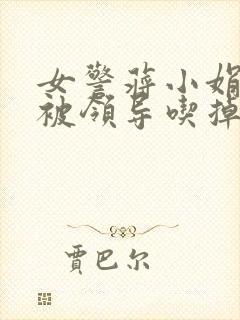 女警蒋小娟
被领导喫掉
贾巴尔